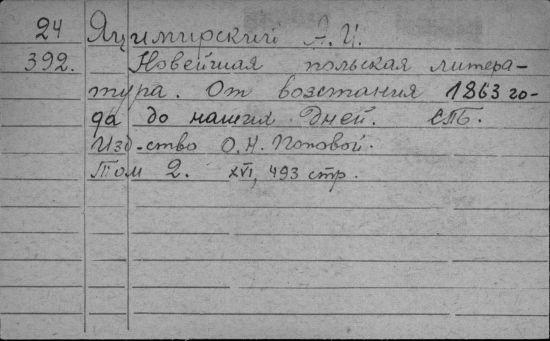 24 Яцимирский А. И.
392. Новейшая польская литера-
тура. От возстания 1863 го-
да до наших дней. СПБ.
Изд-ство О. Н. Поповой.
Том 2. XVI, 493 стр.